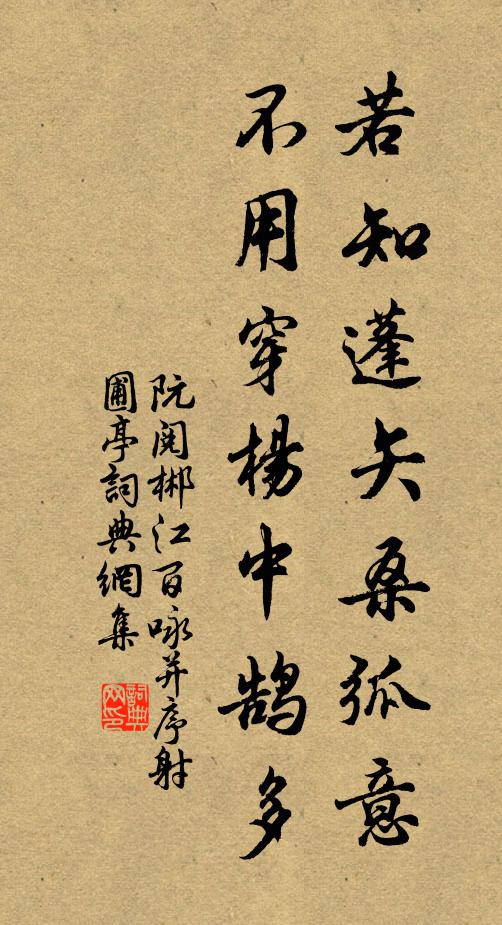 若知蓬矢桑弧意
不用穿楊中鵠多
阮閱郴江百咏并序射
圃亭詞典網集
詞典网印